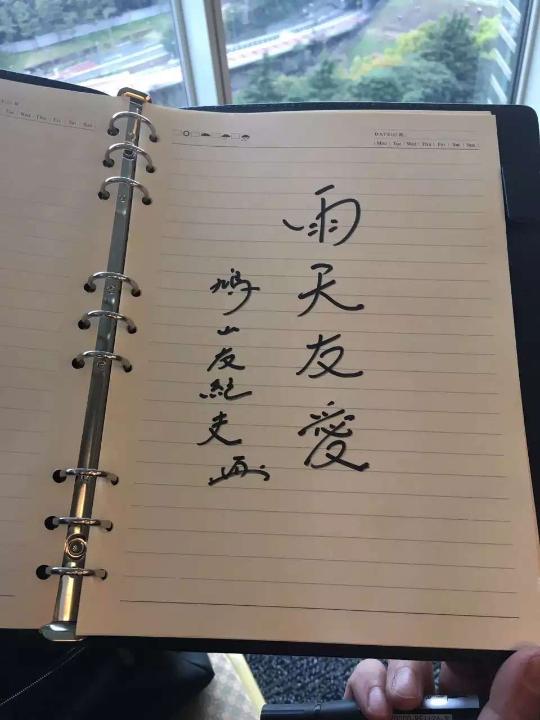 Tue Wed Thu Fri Sat Sun
Mon Tue Wed Thu Fri Sat Sun
雨天友愛
鳩山友紀夫